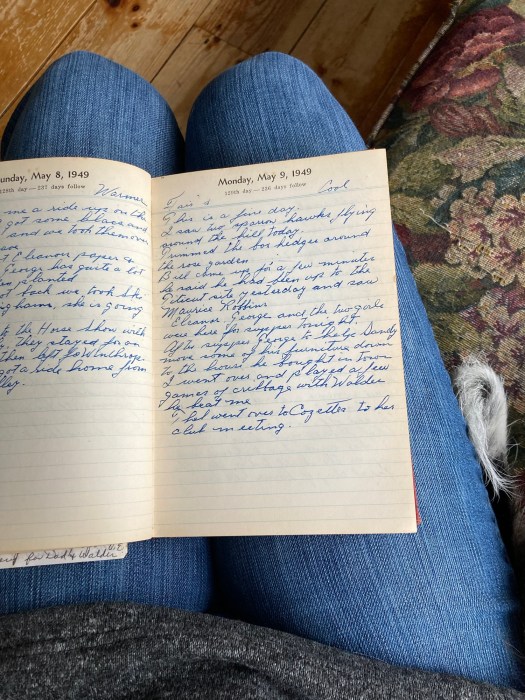 unday, May 8, 1949
128th day — 237 days follow
Warmer
me a ride up on the
got some lilacs and
and we took them over
Eleanor paper &
George has quite a lot
planted
we took She
she is going
to the Horse Show with
They stayed for an
then left for Winthrop.
got a ride home from
for Dad & Walder
Monday, May 9, 1949
129th day — 236 days follow
Fair & Cool
This is a fine day.
I saw two sparow hawks flying
around the hill today.
I trimmed the box hedges around
the rose garden.
Bill came up for a few minutes
he said he had been up to the
saturday and saw
Maurice Robbins
Eleanor George and the two girls
were here for supper tonight.
After supper George to help Dandy
move some of his furniture down
to the house he bought in town
I went over and played a few
games of cribbage with Walder
he beat me
went over to Cozettes to her
club meeting.